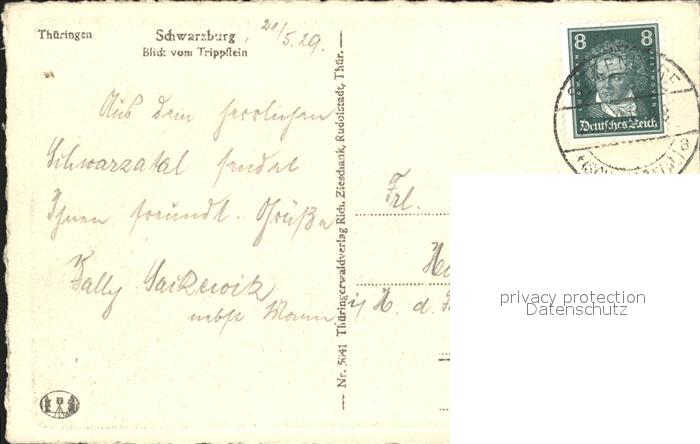 Thüringen
Schwarzburg, 21/5.29.
Blick vom Trippstein
Aus dem herrlichen
Schwarzatal sendet
Ihnen freundl. Grüße
nebst Mann
Nr. 5041 Thüringerwaldverlag Rich. Zieschank, Rudolstadt, Thür.
8 8
Deutsches Reich
Frl.
i/ H. d.
privacy protection
Datenschutz